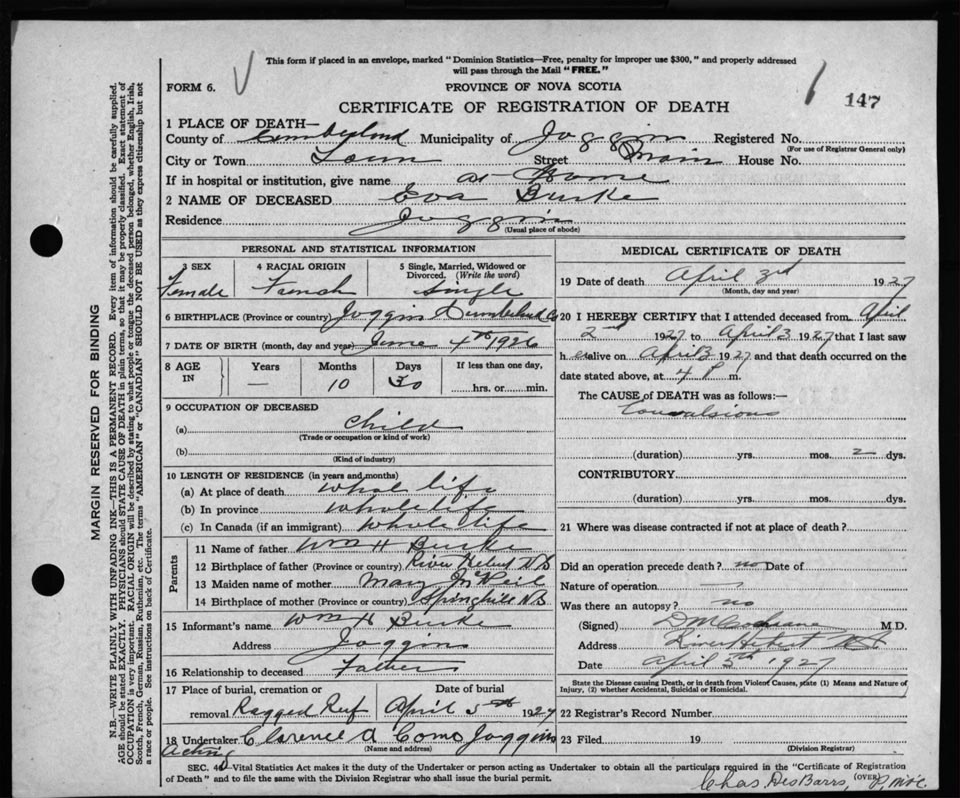 This form if placed in an envelope, marked "Dominion Statistics—Free, penalty for improper use $300," and properly addressed
will pass through the Mail "FREE."
FORM 6.
PROVINCE OF NOVA SCOTIA
147
CERTIFICATE OF REGISTRATION OF DEATH
1 PLACE OF DEATH—
County of Cumberland Municipality of Joggin Registered No.
(For use of Registrar General only)
City or Town Town Street Main House No.
If in hospital or institution, give name at Home
2 NAME OF DECEASED Eva Burke
Residence Joggin
(Usual place of abode)
PERSONAL AND STATISTICAL INFORMATION
3 SEX 4 RACIAL ORIGIN 5 Single, Married, Widowed or
Divorced. (Write the word)
Female French Single
6 BIRTHPLACE (Province or country) Joggin Cumberland Co
7 DATE OF BIRTH (month, day and year) June 4th 1926
8 AGE IN Years Months Days If less than one day,
— 10 30 hrs. or min.
9 OCCUPATION OF DECEASED
(a) child
(Trade or occupation or kind of work)
(b)
(Kind of industry)
10 LENGTH OF RESIDENCE (in years and months)
(a) At place of death whole life
(b) In province whole life
(c) In Canada (if an immigrant) whole life
Parents
11 Name of father Wm H Burke
12 Birthplace of father (Province or country) River Hebert N S
13 Maiden name of mother Mary McNeil
14 Birthplace of mother (Province or country) Springhill N S
15 Informant's name Wm H Burke
Address Joggins
16 Relationship to deceased Father
17 Place of burial, cremation or removal Ragged Reef Date of burial April 5th 1927
18 Undertaker Clarence A Como Joggins
Acting
(Name and address)
MEDICAL CERTIFICATE OF DEATH
19 Date of death April 3rd 1927
(Month, day and year)
20 I HEREBY CERTIFY that I attended deceased from April
2nd 1927 to April 3 1927 that I last saw
her alive on April 3 1927 and that death occurred on the
date stated above, at 4 P m.
The CAUSE of DEATH was as follows:—
Convulsions
(duration) yrs. mos. 2 dys.
CONTRIBUTORY.
(duration) yrs. mos. dys.
21 Where was disease contracted if not at place of death?
Did an operation precede death? no Date of
Nature of operation —
Was there an autopsy? no
(Signed) D M Cochrane M D.
Address River Hebert N S
Date April 5th 1927
State the Disease causing Death, or in death from Violent Causes, state (1) Means and Nature of
Injury, (2) whether Accidental, Suicidal or Homicidal.
22 Registrar's Record Number
23 Filed 19
(Division Registrar)
SEC. 4 Vital Statistics Act makes it the duty of the Undertaker or person acting as Undertaker to obtain all the particulars required in the "Certificate of Registration
of Death" and to file the same with the Division Registrar who shall issue the burial permit.
(OVER)
Chas. DesBarrs,
MARGIN RESERVED FOR BINDING
N.B.—WRITE PLAINLY WITH UNFADING INK—THIS IS A PERMANENT RECORD. Every item of information should be carefully supplied.
AGE should be stated EXACTLY. PHYSICIANS should STATE CAUSE OF DEATH in plain terms, so that it may be properly classified. Exact statement of
OCCUPATION is very important. RACIAL ORIGIN will be described by stating to what people or tongue the deceased person belonged, whether English, Irish,
Scotch, French, German, Russian, Ruthenian, etc. The terms "AMERICAN" or "CANADIAN" SHOULD NOT BE USED as they express citizenship but not
a race or people. See instructions on back of Certificate.